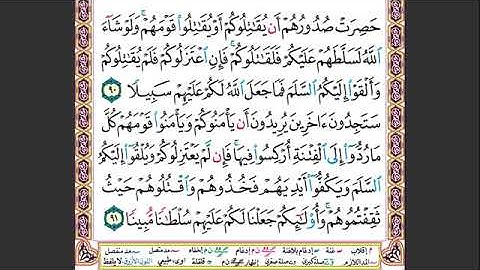 حَصِرَتْ صُدُورُهُمْ أَن يُقَٰتِلُوكُمْ أَوْ يُقَٰتِلُوا۟ قَوْمَهُمْ ۚ وَلَوْ شَآءَ
ٱللَّهُ لَسَلَّطَهُمْ عَلَيْكُمْ فَلَقَٰتَلُوكُمْ ۚ فَإِنِ ٱعْتَزَلُوكُمْ فَلَمْ يُقَٰتِلُوكُمْ
وَأَلْقَوْا۟ إِلَيْكُمُ ٱلسَّلَمَ فَمَا جَعَلَ ٱللَّهُ لَكُمْ عَلَيْهِمْ سَبِيلًا ٩٠
سَتَجِدُونَ ءَاخَرِينَ يُرِيدُونَ أَن يَأْمَنُوكُمْ وَيَأْمَنُوا۟ قَوْمَهُمْ كُلَّ
مَا رُدُّوٓا۟ إِلَى ٱلْفِتْنَةِ أُرْكِسُوا۟ فِيهَا ۚ فَإِن لَّمْ يَعْتَزِلُوكُمْ وَيُلْقُوٓا۟ إِلَيْكُمُ
ٱلسَّلَمَ وَيَكُفُّوٓا۟ أَيْدِيَهُمْ فَخُذُوهُمْ وَٱقْتُلُوهُمْ حَيْثُ
ثَقِفْتُمُوهُمْ ۚ وَأُو۟لَٰٓئِكُمْ جَعَلْنَا لَكُمْ عَلَيْهِمْ سُلْطَٰنًا مُّبِينًا ٩١